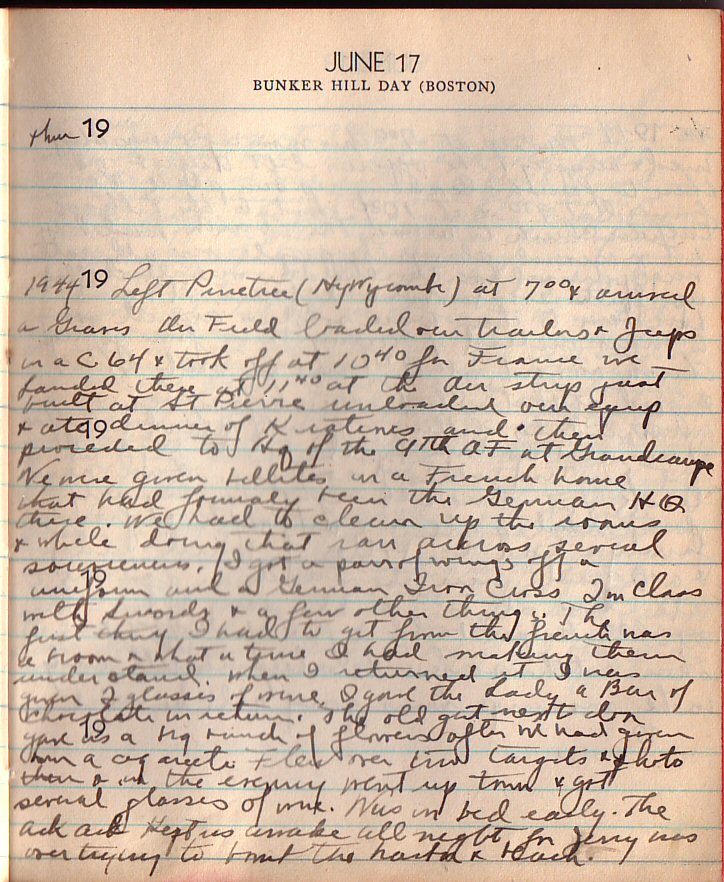 JUNE 17
BUNKER HILL DAY (BOSTON)
19
1944 19 Left Pinetree (Hy Wycombe) at 7 00 & arrived
a Graves Air Field loaded our trailers & Jeeps
in a C 64 & took off at 10 40 for France we
landed there at 11 40 at the air strip just
built at St Pierre unloaded our equip
& ate 19 dinner of K rations and then
proceded to Hq of the 9th AF at Grandcampe
We were given billites in a French home
that had formaly been the German HQ
there. We had to clean up the rooms
& while doing that ran across several
souvenirs. I got a pair of wings off a
19
uniform and a German Iron Cross 2nd Class
with swords & a few other things. The
first thing I had to get from the french was
a broom & what a time I had making them
understand. When I returned it I was
given 2 glasses of wine, I gave the Lady a Bar of
chocolate in return. The old gat next dor
19
gave us a big bunch of flowers after we had given
him a cigarette Flew over two targets & photo
them & in the evening went up town & got
several glasses of wine. Was in bed early. The
ack ack Kept us awake all night for Jerry was
over trying to bomb the harbor & beach.